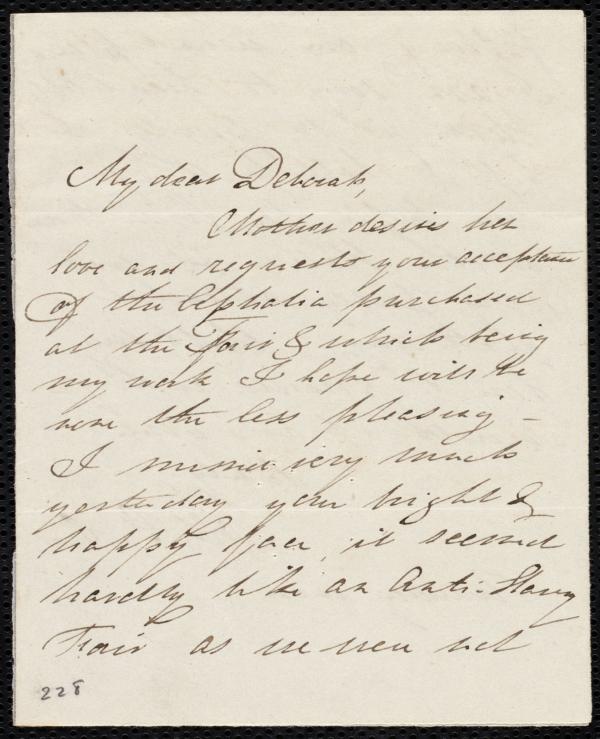 My dear Deborah,
Mother desires her
love and requests your acceptance
of the Cephalia purchased
at the Fair & which being
my work I hope will be
none the less pleasing –
I missed very much
yesterday your bright &
happy face, it seemed
hardly like an Anti-Slavery
Fair as we were not
228